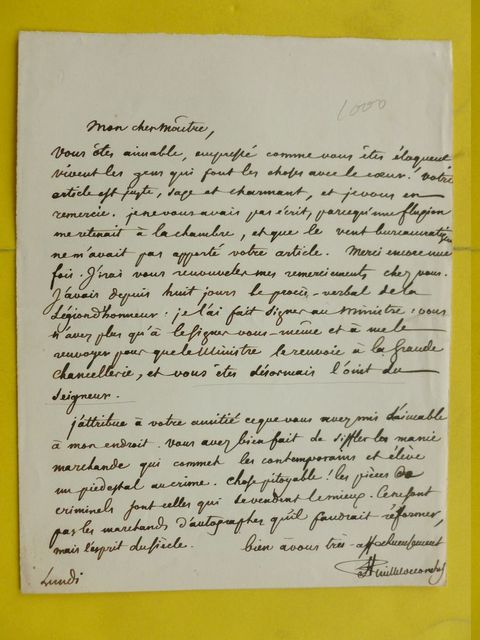 1000
Mon cher Maître,
Vous êtes aimable, empressé comme vous êtes éloquent
vivent les gens qui font les choses avec le cœur. Votre
article est juste, sage et charmant, et je vous en
remercie. je ne vous avais pas écrit, parce qu'une fluxion
me retenait à la chambre, et que le vent bureaucratique
ne m'avait pas apporté votre article. Merci encore une
fois. J'irai vous renouveler mes remerciements chez vous.
J'avais depuis huit jours le procès-verbal de la
Légion d'honneur : je l'ai fait signer au Ministre : vous
n'avez plus qu'à le signer vous-même et à me le
renvoyer pour que le Ministre le renvoie à la Grande
Chancellerie, et vous êtes désormais l'oint du
Seigneur.
j'attribue à votre amitié ce que vous avez mis d'aimable
à mon endroit. Vous avez bien fait de siffler les manie
marchande qui commet les contemporains et élève
un piédestal au crime. Chose pitoyable ! les pièces de
criminels sont celles qui se vendent le mieux. Ce ne sont
pas les marchands d'autographes qu'il faudrait réformer,
mais l'esprit du siècle. bien à vous très-affectueusement
Lundi